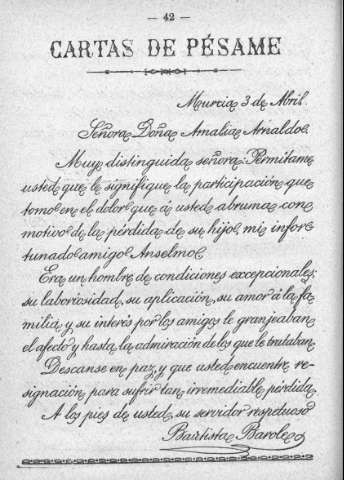 — 42 —
CARTAS DE PÉSAME
Murcia 3 de Abril.
Señora Doña Amalia Arnaldo.
Muy distinguida señora: Permítame
usted que le signifique la participación que
tomo en el dolor que á usted abruma con
motivo de la pérdida de su hijo, mi infor
tunado amigo Anselmo.
Era un hombre de condiciones excepcionales;
su laboriosidad, su aplicación, su amor á la fa
milia, y su interés por los amigos le granjeaban
el afecto y hasta la admiración de los que le trataban.
Descanse en paz, y que usted encuentre re-
signación para sufrir tan irremediable pérdida.
A los pies de usted, su servidor respetuoso
Bautista Barole